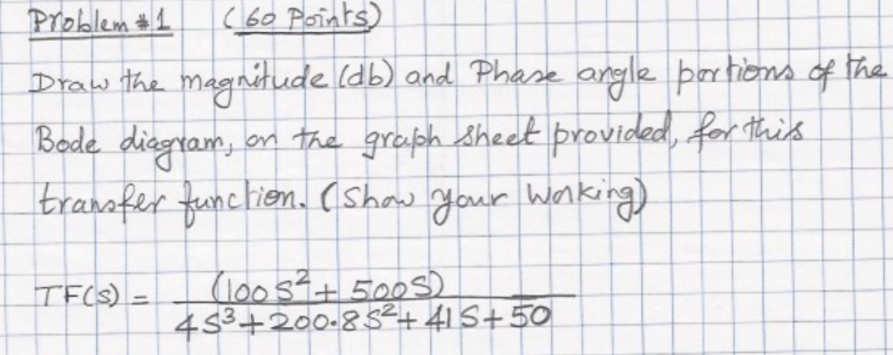 Problem #1 (60 Points)
Draw the magnitude (db) and Phase angle portions of the
Bode diagram, on the graph sheet provided, for this
transfer function. (Show your Working)
TF(S) = (100S²+500S)
4S³+200.8S²+41S+50